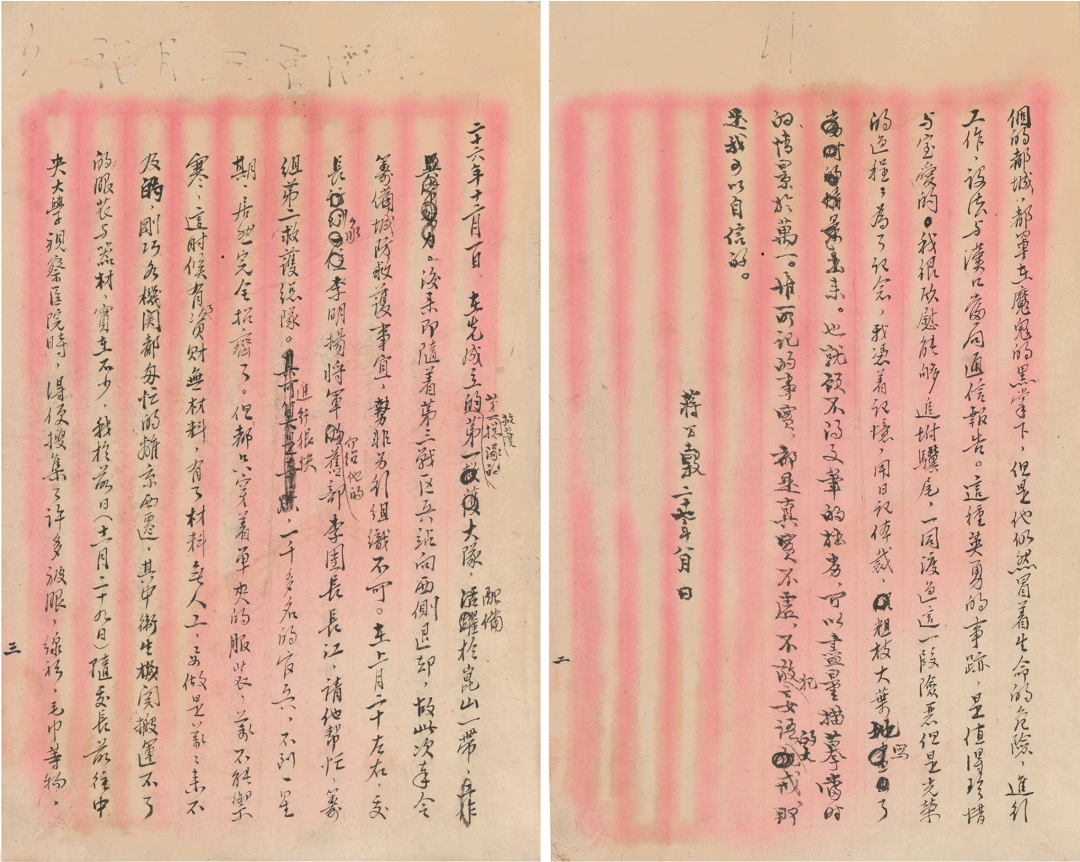 個的都城,都罩在魔鬼的黑掌下,但是他仍然冒着生命的危險,進行
工作,設法与漢口當局通信報告。這種英勇的事跡,是值得珍惜
与宝愛的。我很欣慰能够追坿驥尾,一同渡過這一段險惡但是光榮
的過程,為了記念,我憑着記憶,用日記体裁,粗枝大葉地寫了
出來。也就顧不得文筆的拙劣,可以盡量描摹當時
的情景於萬一。唯所記的事實,都是真實不虛,不敢犯妄語的大戒,那
是我可以自信的。
蔣公穀 八月 日
二
二十六年十二月一日,在先成立的第一大隊,配備於崑山一帶,工作
。後来即隨着第三战区兵站向西側退却,故此次奉令
籌備城防救護事宜,勢非另行組織不可。在上月二十左右,交
長,李明揚將軍介绍他的舊部李團長長江,請他帮忙,籌
組第二救護總隊。進行很快,一千多名的官兵,不到一星
期,居然完全招齊了。但都只穿着單夾的服裝,萬不能禦
寒,這时候有了資財無材料,有了材料無人工,要做是萬萬来不
及的,剛巧各機関都匆忙的離京西遷,其中衛生機関搬運不了
的服裝与器材,實在不少,我於前日(十一月二十九日)隨委長前往中
央大學視察医院時,得便搜集了許多被服,線衫,毛巾等物,
三